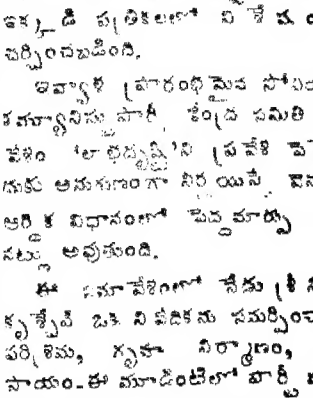 ఇక్కడి పత్రికలలో విశేషం
చర్చించబడింది.
ఇవ్వాళ ప్రారంభమైన సోవి
కమ్యూనిస్టు పార్టీ కేంద్ర సమితి
వేశం 'లాభదృష్టి'ని ప్రవేశ పె
డుకు అనుగుణంగా నిర్ణయిస్తే,
ఆర్థిక విధానంలో పెద్దమార్పు
నట్లు అవుతుంది.
ఈ సమావేశంలో నేడు శ్రీ
కృశ్చేవ్ ఒక నివేదికను సమర్పించ
పరిశ్రమ, గృహ నిర్మాణం,
సాయం-ఈ మూడింటిలో పార్టీ